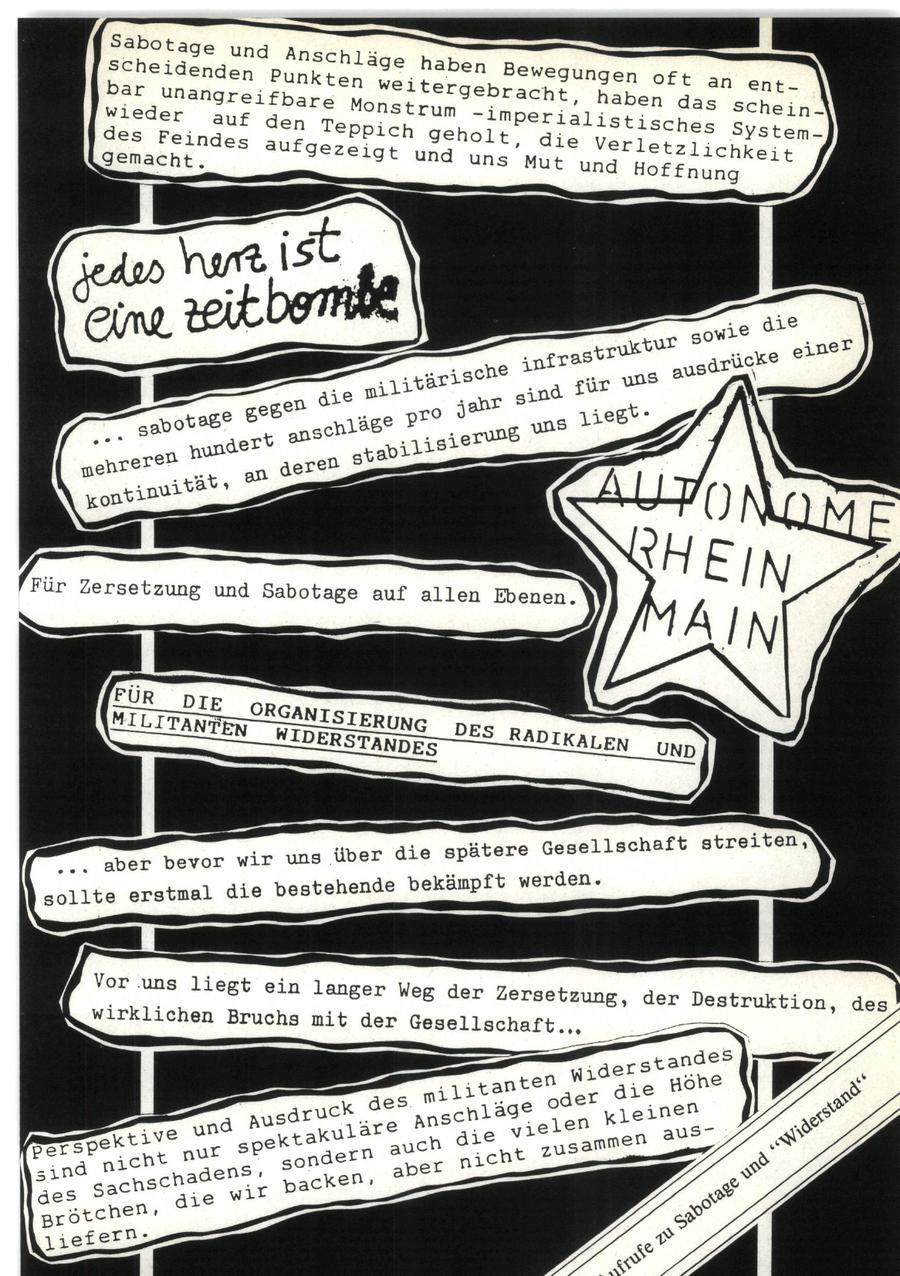 Sabotage und Anschläge haben Bewegungen oft an ent-
scheidenden Punkten weitergebracht, haben das schein-
bar unangreifbare Monstrum -imperialistisches System-
wieder auf den Teppich geholt, die Verletzlichkeit
des Feindes aufgezeigt und uns Mut und Hoffnung
gemacht.
jedes herz ist
eine zeitbombe
... sabotage gegen die militärische infrastruktur sowie die
mehreren hundert anschläge pro jahr sind für uns ausdrücke einer
kontinuität, an deren stabilisierung uns liegt.
AUTONOME
RHEIN
MAIN
Für Zersetzung und Sabotage auf allen Ebenen.
FÜR DIE ORGANISIERUNG DES RADIKALEN UND
MILITANTEN WIDERSTANDES
... aber bevor wir uns über die spätere Gesellschaft streiten,
sollte erstmal die bestehende bekämpft werden.
Vor uns liegt ein langer Weg der Zersetzung, der Destruktion, des
wirklichen Bruchs mit der Gesellschaft...
Perspektive und Ausdruck des militanten Widerstandes
sind nicht nur spektakuläre Anschläge oder die Höhe
des Sachschadens, sondern auch die vielen kleinen
Brötchen, die wir backen, aber nicht zusammen aus-
liefern.
ufrufe zu Sabotage und “Widerstand“